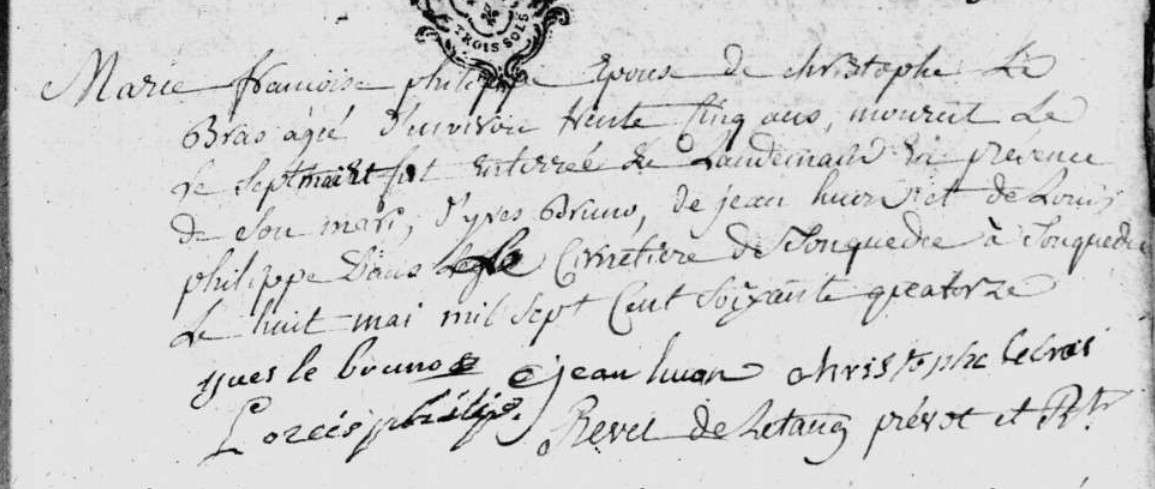 TROIS SOLS
Marie francoise philippe Epouse de christophe Le
Bras agée d'environ trente Cinq ans, mourut Le
Le sept mai et fut enterrée Le Landemain En présence
de son mari, d'yves Bruno, de jean huon et de Louis
philippe dans Le Cimetière de Tonquedec à Tonquedec
Le huit mai mil sept Cent soixante quatorze
yves le bruno jean huon christophe lebras
Louis philipe Revel de Letang prévot et Rr.